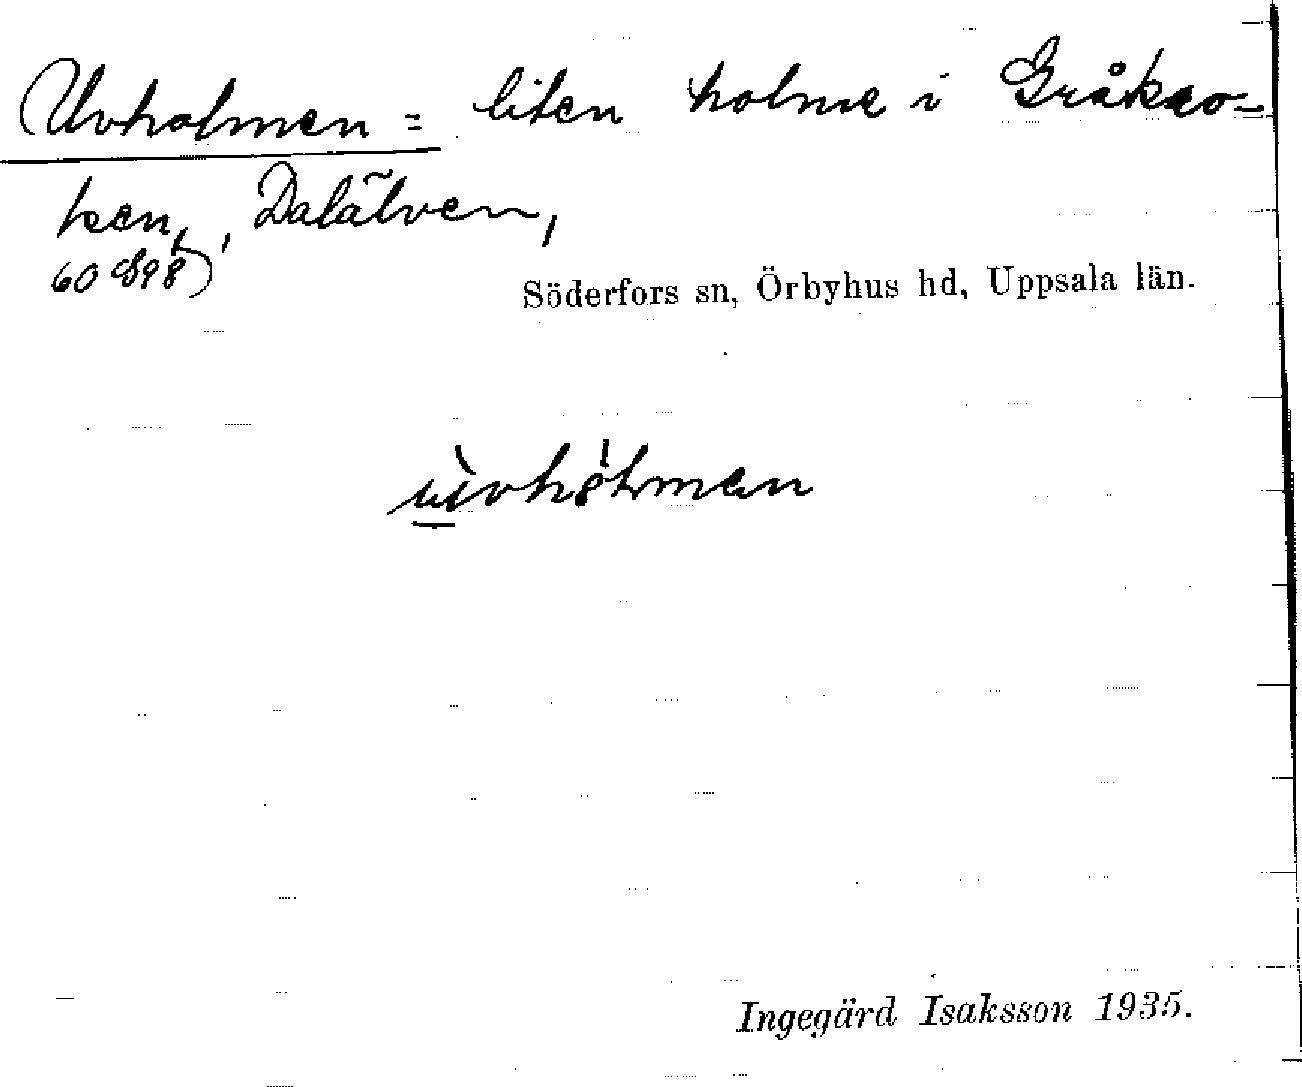 Uvholmen = liten holme i Gråkro-
ken, Dalälven,
60 c898)
Söderfors sn, Örbyhus hd, Uppsala län.
Ingegärd Isaksson 1935.